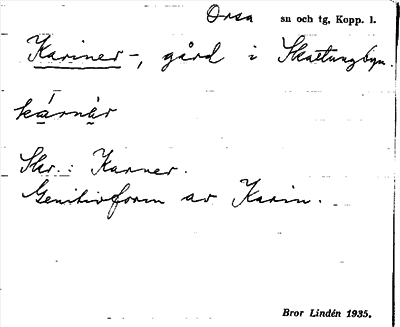 Orsa sn och tg, Kopp. l.
Kariner-, gård i Skattungbyn.
kárnär
Skr.: Karner.
Genitivform av Karin.
Bror Lindén 1935.